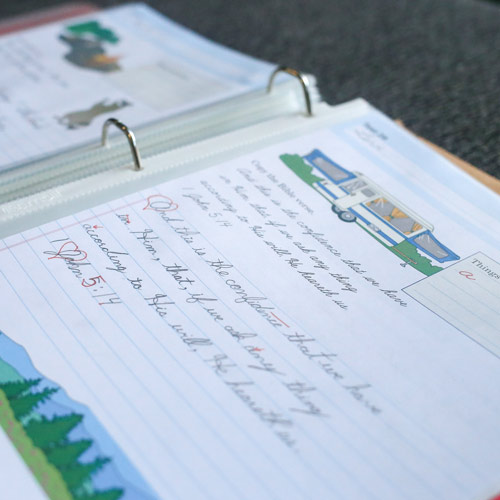 Copy this Bible verse.
And this is the confidence that we have
in Him, that, if we ask any thing
according to His will, He heareth us.
1 John 5:14
Things
a
And this is the confidence that we have
in Him, that, if we ask any thing
acording to His will, He heareth us.
1 John 5:14